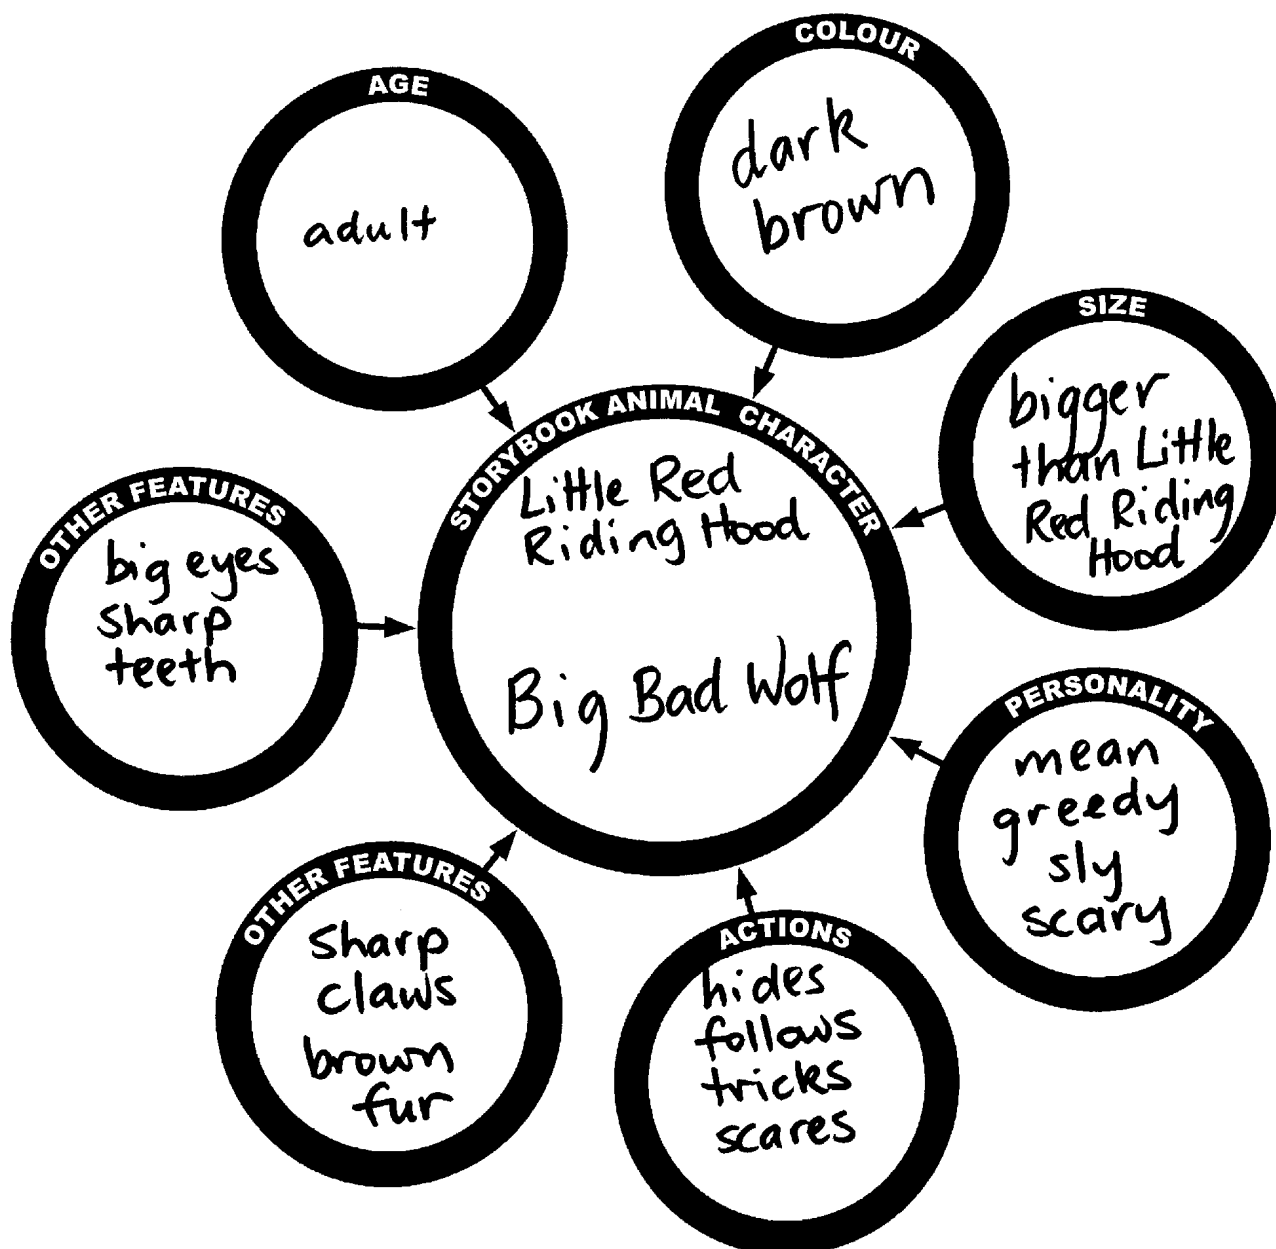 AGE
adult
COLOUR
dark
brown
SIZE
bigger
than Little
Red Riding
Hood
STORYBOOK ANIMAL CHARACTER
Little Red
Riding Hood
Big Bad Wolf
OTHER FEATURES
big eyes
sharp
teeth
PERSONALITY
mean
greedy
sly
scary
OTHER FEATURES
sharp
claws
brown
fur
ACTIONS
hides
follows
tricks
scares